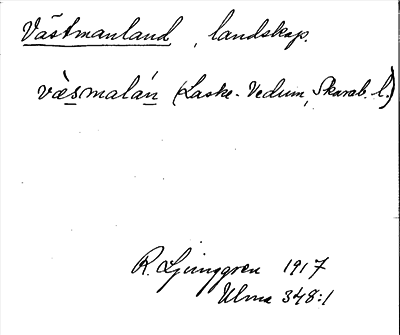 Västmanland, landskap.
vàsmalán (Laske-Vedum, Skarab. l.)
R. Ljunggren 1917
Ulma 348:1